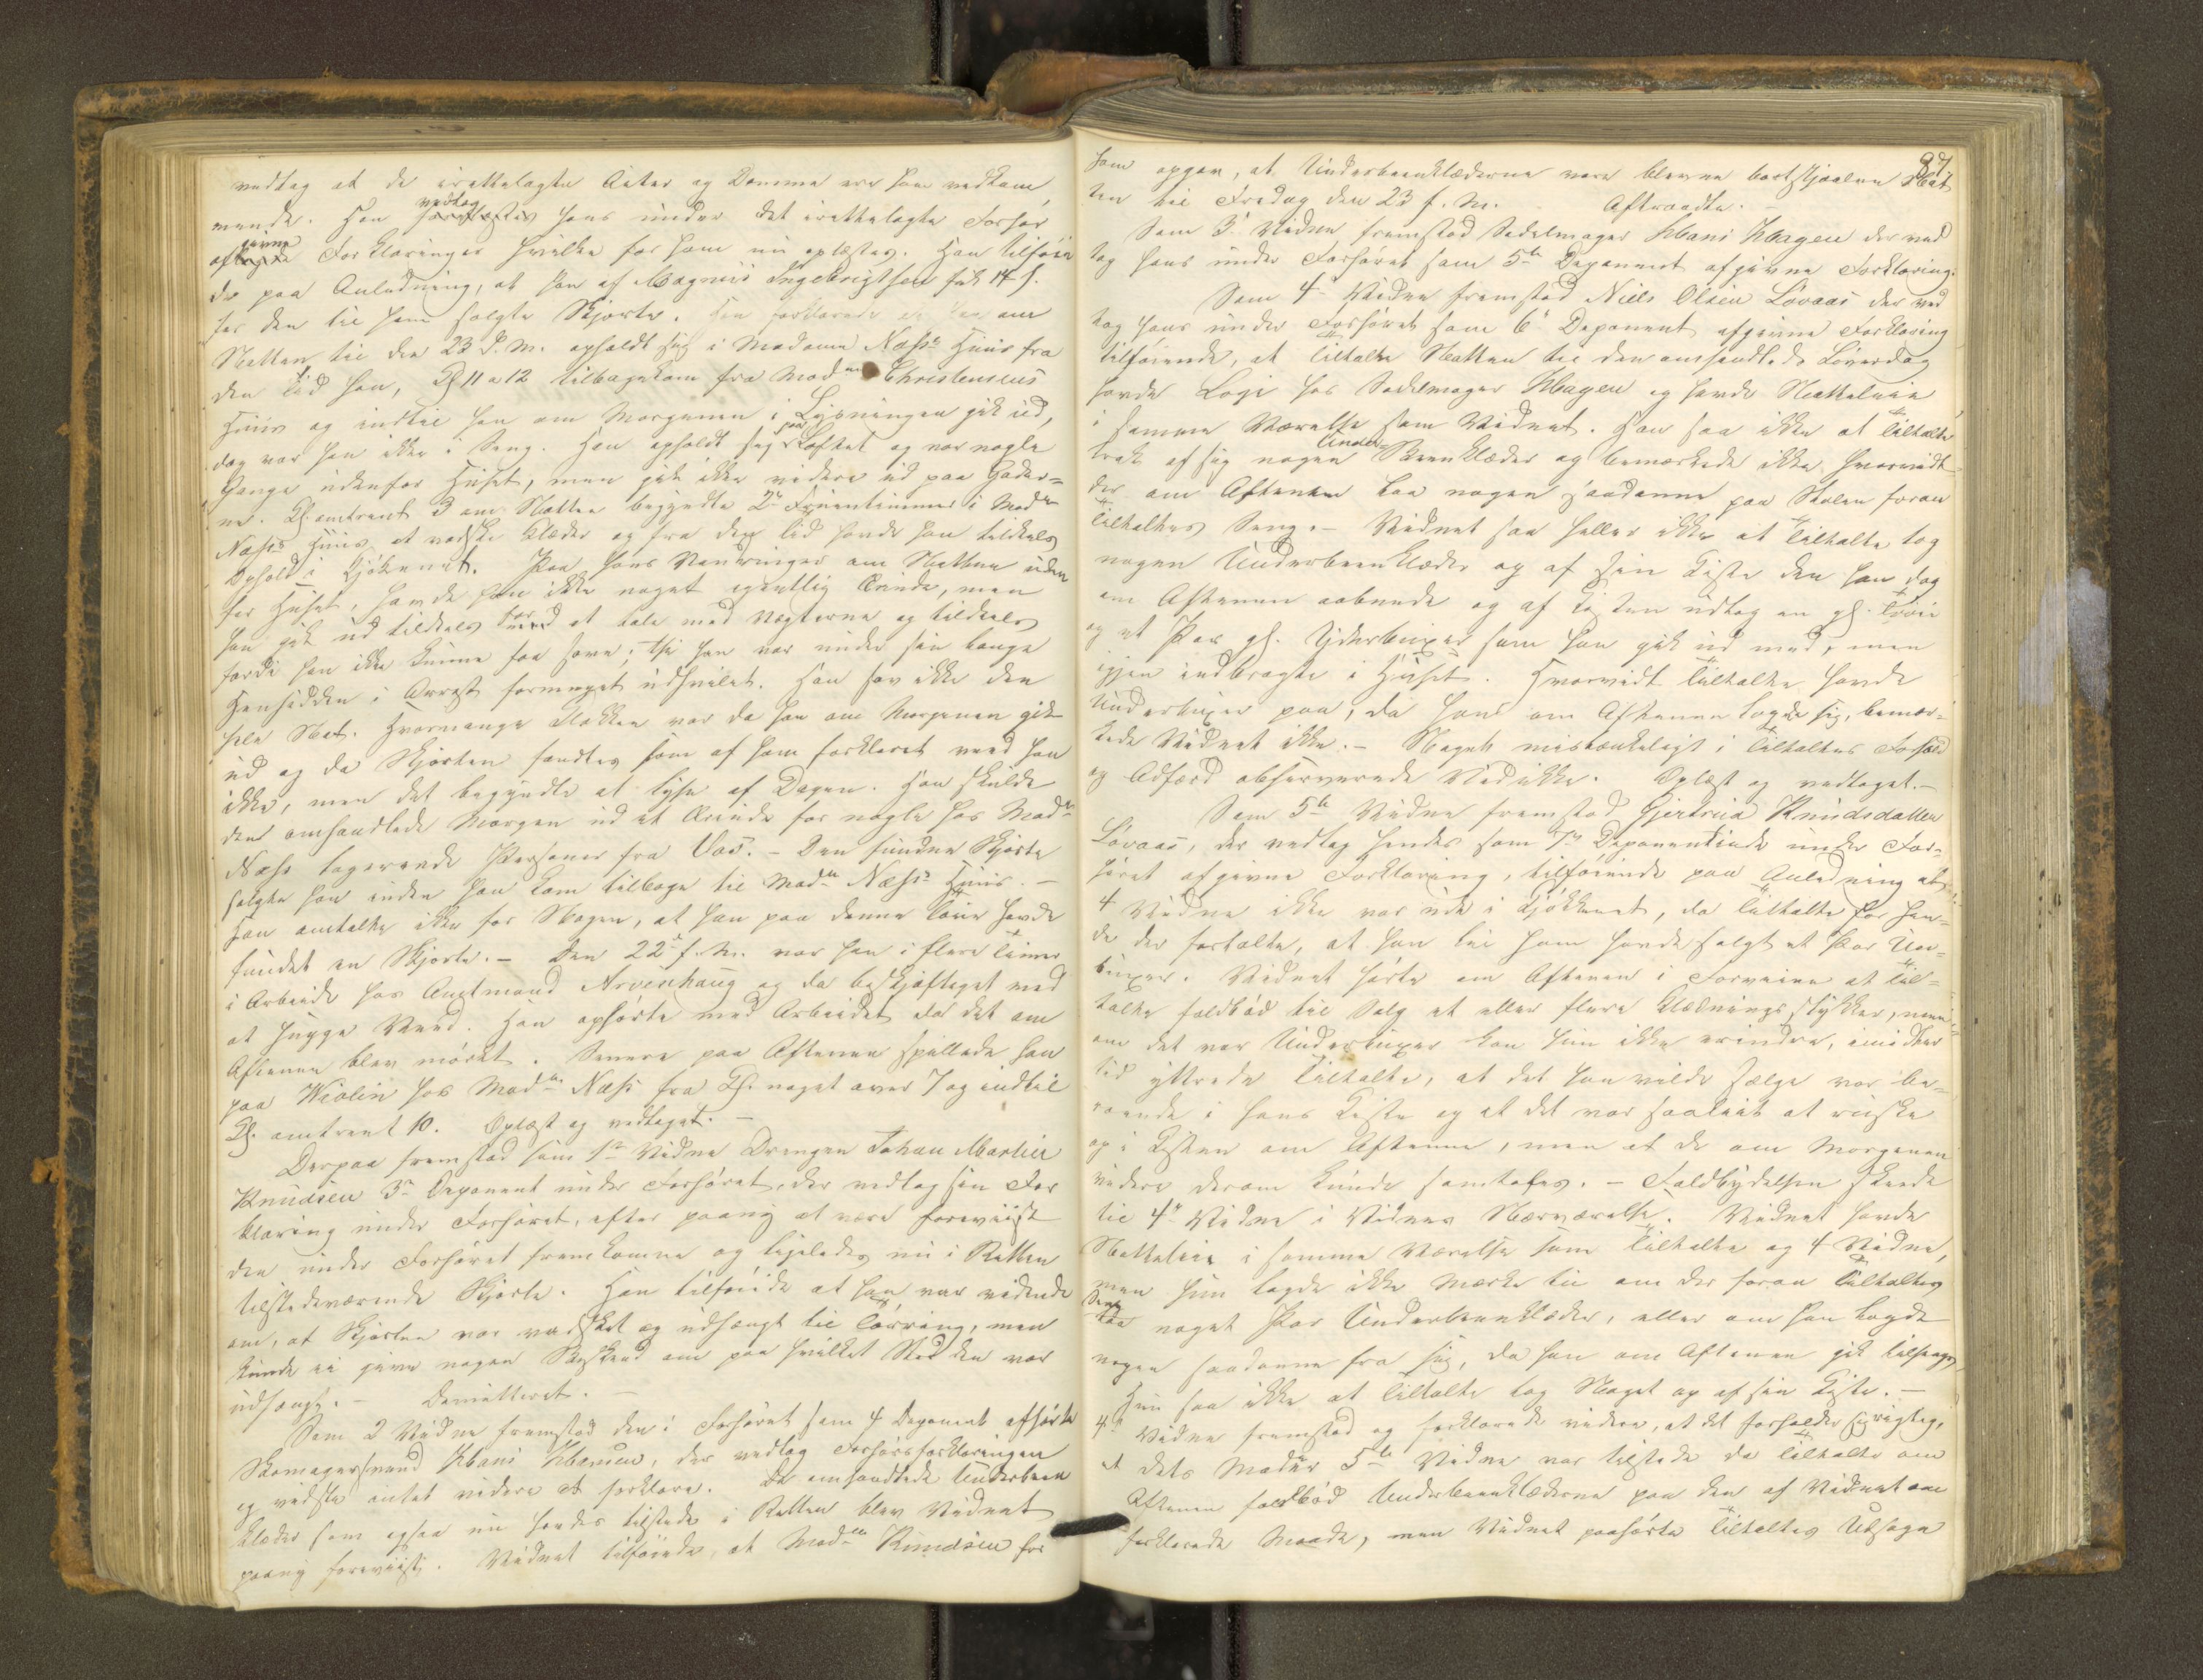 vedtog at de irettelagte Acter og Domme ere ham vedkom
mende. Han vedtog hans under det irettelagte Forhør
afgivne Forklaringer hvilke for ham nu oplæstes. Han tilføie
de paa Anledning, at han af Magnus Ingebrigtsen fik 14 s.
for den til ham solgte Skjorte. Han forklarede at han om
Natten til den 23 d. M. opholdt sig i Madame Næss's Huus fra
den Tid han, Kl 11 a 12 tilbagekom fra Madme Christensens
Huus og indtil han om Morgenen i Lysningen gik ud,
dog var han ikke i Seng. Han opholdt sig paa Loftet og var nogle
Gange udenfor Huset, men gik ikke videre ud paa Gader=
ne. Kl. omtrent 3 om Natten begyndte 2de Fruentimmer i Madme
Næss's Huus at vadske Klæder og fra den Tid havde han tildels
Ophold i Kjøkkenet. Paa hans Vandringer om Natten uden
for Huset, havde han ikke noget egentlig Ærinde, men
han gik ud tildels for at tale med Vægterne og tildeels
fordi han ikke kunne faa sove; thi han var under sin lange
Hensidden i Arrest formeget udhvilet. Han sov ikke den
hele Nat. Hvormange Klokken var da han om Morgenen gik
ud og da Skjorten fandtes som af ham forklaret veed han
ikke, men det begyndte at lyse af Dagen. Han skulde
den omhandlede Morgen ud et Ærinde for nogle hos Madme
Næss logerende Personer fra Vos. - Den fundne Skjorte
solgte han inden han kom tilbage til Madme Næss's Huus. -
Han omtalte ikke for Nogen, at han paa denne Touer havde
fundet en Skjorte. - Den 22de f. M. var han i flere Timer
i Arbeide hos Amtmand Arveschoug og da beskjæftiget med
at hugge Veed. Han ophørte med Arbeidet da det om
Aftenen blev mørkt. Senere paa Aftenen spillede han
paa Wiolin hos Madme Næss fra Kl. noget over 7 og indtil
Kl. omtrent 10. Oplæst og vedtaget. -
Derpaa fremstod som 1ste Vidne Drengen Johan Martin
Knudsen 3de Deponent under Forhøret, der vedtog sin For
klaring under Forhøret, efter paany at være foreviist
den under Forhøret fremkomne og ligeledes nu i Retten
tilstedeværende Skjorte. Han tilføiede at han var vidende
om, at Skjorten var vadsket og udhængt til Tørring, men
kunde ei give nogen Beskeed om paa hvilket Sted den var
udhængt. - Demitteret. -
Som 2 Vidne fremstod den i Forhøret som 4 Deponent afhørte
Skomagersvend Hans Hansen, der vedtog Forhørsforklaringen
og vidste intet videre at forklare. De omhandlede Underbeen
klæder som ogsaa nu havdes tilstede i Retten blev Vidnet
paany foreviist. Vidnet tilføiede, at Madme Knudsen for
87
ham opgav, at Underbeenklæderne vare blevne bortstjaalne Nat
ten til Fredag den 23 f. M. Aftraadte. -
Som 3de Vidne fremstod Sadelmager Hans Hagen der ved
tog hans under Forhøret som 5te Deponent afgivne Forklaring.
Som 4de Vidne fremstod Niels Olsen Lovaas der ved
tog hans under Forhøret som 6te Deponent afgivne Forklaring
tilføiende, at Tiltalte Natten til den omhandlede Løverdag
havde Logi hos Sadelmager Hagen og havde Natteleie
i samme Værelse som Vidnet. Han saa ikke at Tiltalte
trak af sig nogen Under= Beenklæder og bemærkede ikke hvorvidt
der om Aftenen laa nogen saadanne paa Stolen foran
Tiltaltes Seng. - Vidnet saa heller ikke at Tiltalte tog
nogen Underbeenklæder op af sin Kiste den han dog
om Aftenen aabnede og af Kisten udtog en gl. Trøie
og et Par gl. Yderbuxer som han gik ud med, men
igjen indbragte i Huset. Hvorvidt Tiltalte havde
Underbuxer paa, da han om Aftenen lagde sig, bemær=
kede Vidnet ikke. - Noget mistænkeligt i Tiltaltes Forhold
og Adfærd observerede Vid ikke. Oplæst og vedtaget. -
Som 5te Vidne fremstod Gjertrud Knudsdatter
Lovaas, der vedtog hendes som 7de Deponentinde under For=
høret afgivne Forklaring, tilføiende paa Anledning at
4 Vidne ikke var ude i Kjøkkenet, da Tiltalte for hen=
de der fortalte, at han til ham havde solgt et Par Un=
buxer. Vidnet hørte om Aftenen i Forveien at Til=
talte faldbød til Salg et eller flere Klædningsstykker, men
om det var Underbuxer kan hun ikke erindre, imidler
tid yttrede Tiltalte, at det han vilde sælge var be=
roende i hans Kiste og at det var saaleit at ruske
op i Kisten om Aftenen, men at de om Morgenen
videre derom kunde samtales. - Faldbydelsen skeede
til 4de Vidne i Vidnes Nærværelse. Vidnet havde
Natteleie i samme Værelse som Tiltalte og 4 Vidne,
men hun lagde ikke Mærke til om der foran Tiltaltes
Seng laa noget Par Underbeenklæder, eller om han lagde
nogen saadanne fra sig, da han om Aftenen gik tilsengs.
Hun saa ikke at Tiltalte tog Noget op af sin Kiste. -
4de Vidne fremstod og forklarede videre, at det forholder sig rigtig,
at dets Moder 5te Vidne var tilstede da Tiltalte om
Aftenen faldbød Underbeenklæderne paa den af Vidnet om
forklarede Maade, men Vidnet paahørte Tiltaltes Udsagn